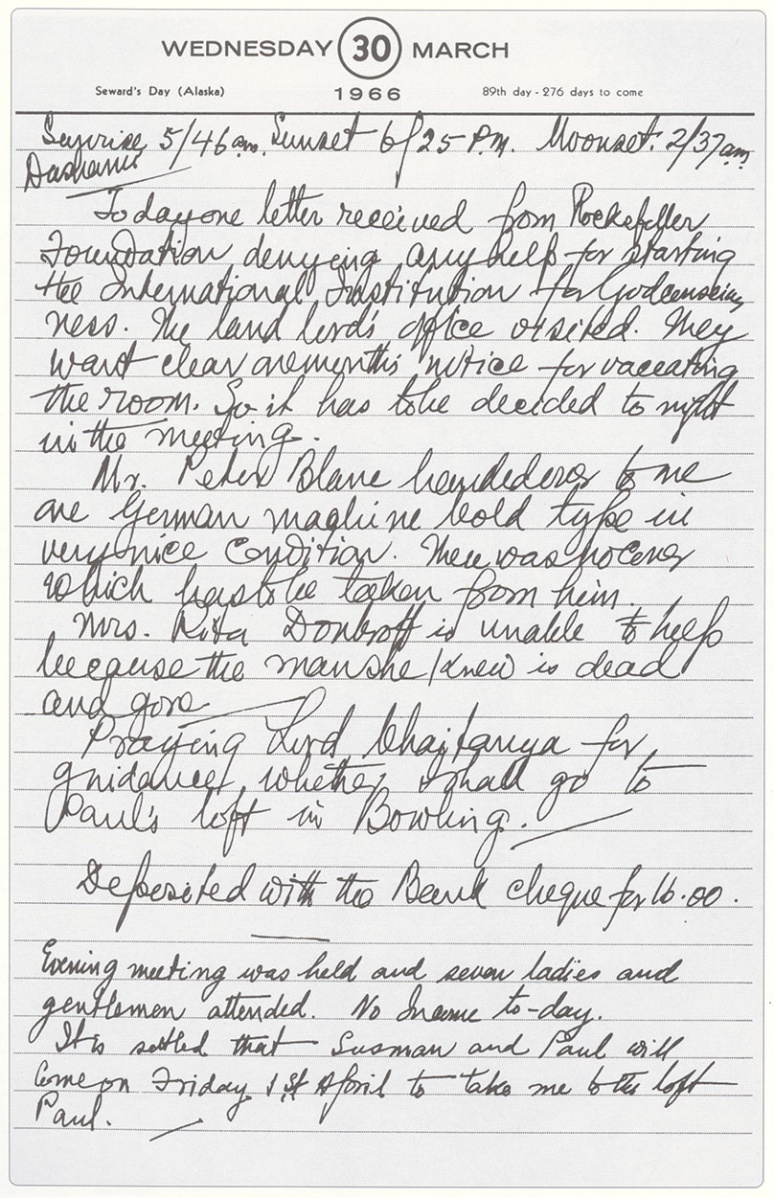 WEDNESDAY 30 MARCH
Seward's Day (Alaska) 1966 89th day - 276 days to come
Sunrise 5/46 am. Sunset 6/25 P.M. Moonset: 2/37 am
Dashami
To day one letter received from Rockefeller
Foundation denying any help for starting
the International Institution for Godconscious
ness. The land lord's office visited. They
want clear one month's notice for vaccating
the room. So it has to be decided to night
in the meeting.
Mr. Peter Blane handed over to me
one German machine bold type in
very nice condition. There was no cover
which has to be taken from him.
Mrs. Rita is unable to help
because the man she knew is dead
and gone
Praying Lord Chaitanya for
guidance, whether I shall go to
Paul's loft in Bowling.
Deposited with the Bank cheque for 16.00.
Evening meeting was held and seven ladies and
gentlemen attended. No Income to-day.
It is settled that Susman and Paul will
Come on Friday 1st April to take me to the loft
Paul.